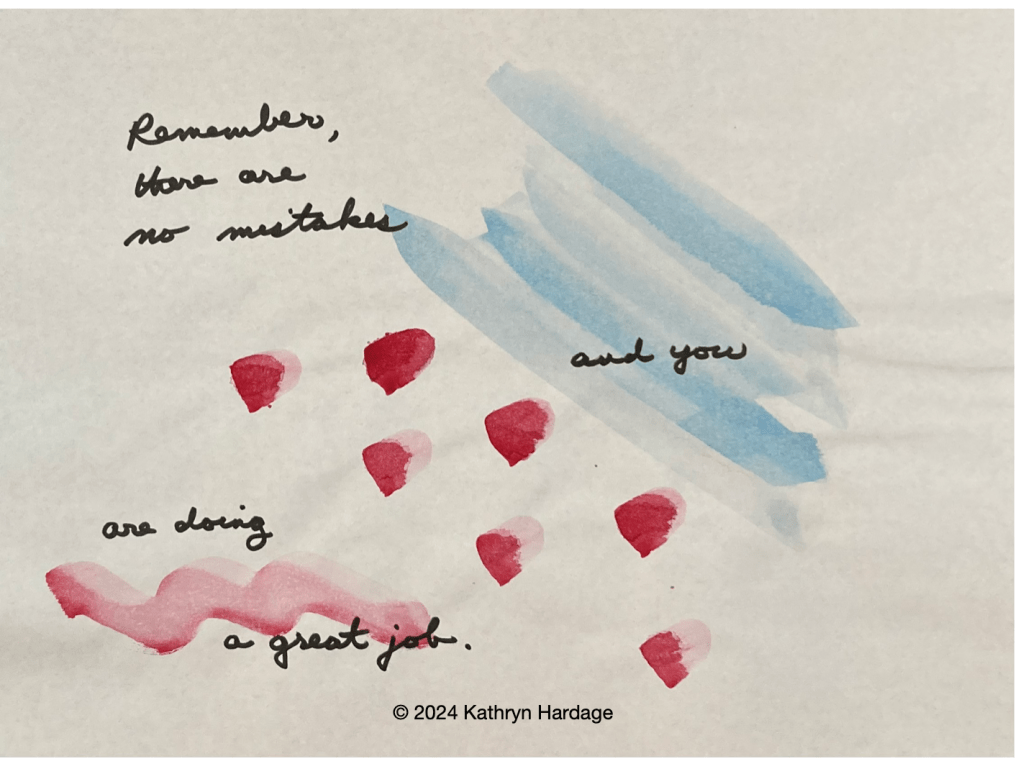 Remember,
there are
no mistakes
and you
are doing
a great job.
© 2024 Kathryn Hardage